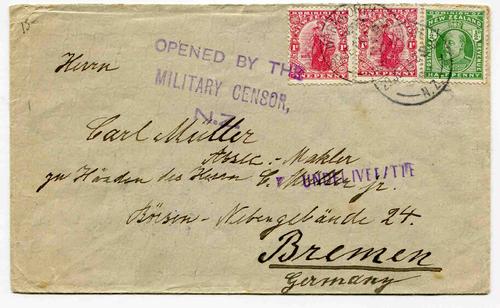 15-
OPENED BY THE
MILITARY CENSOR,
N.Z.
ONE PENNY
ONE PENNY
DOMINION OF
NEW ZEALAND
POSTAGE
REVENUE
HALFPENNY
N.Z.
Herrn
Carl Müller
Assec.-Makler
zu Händen des Herrn C. Müller jr.
UNDELIVER/TIE
Börsen-Nebengebände 24.
Bremen
Germany